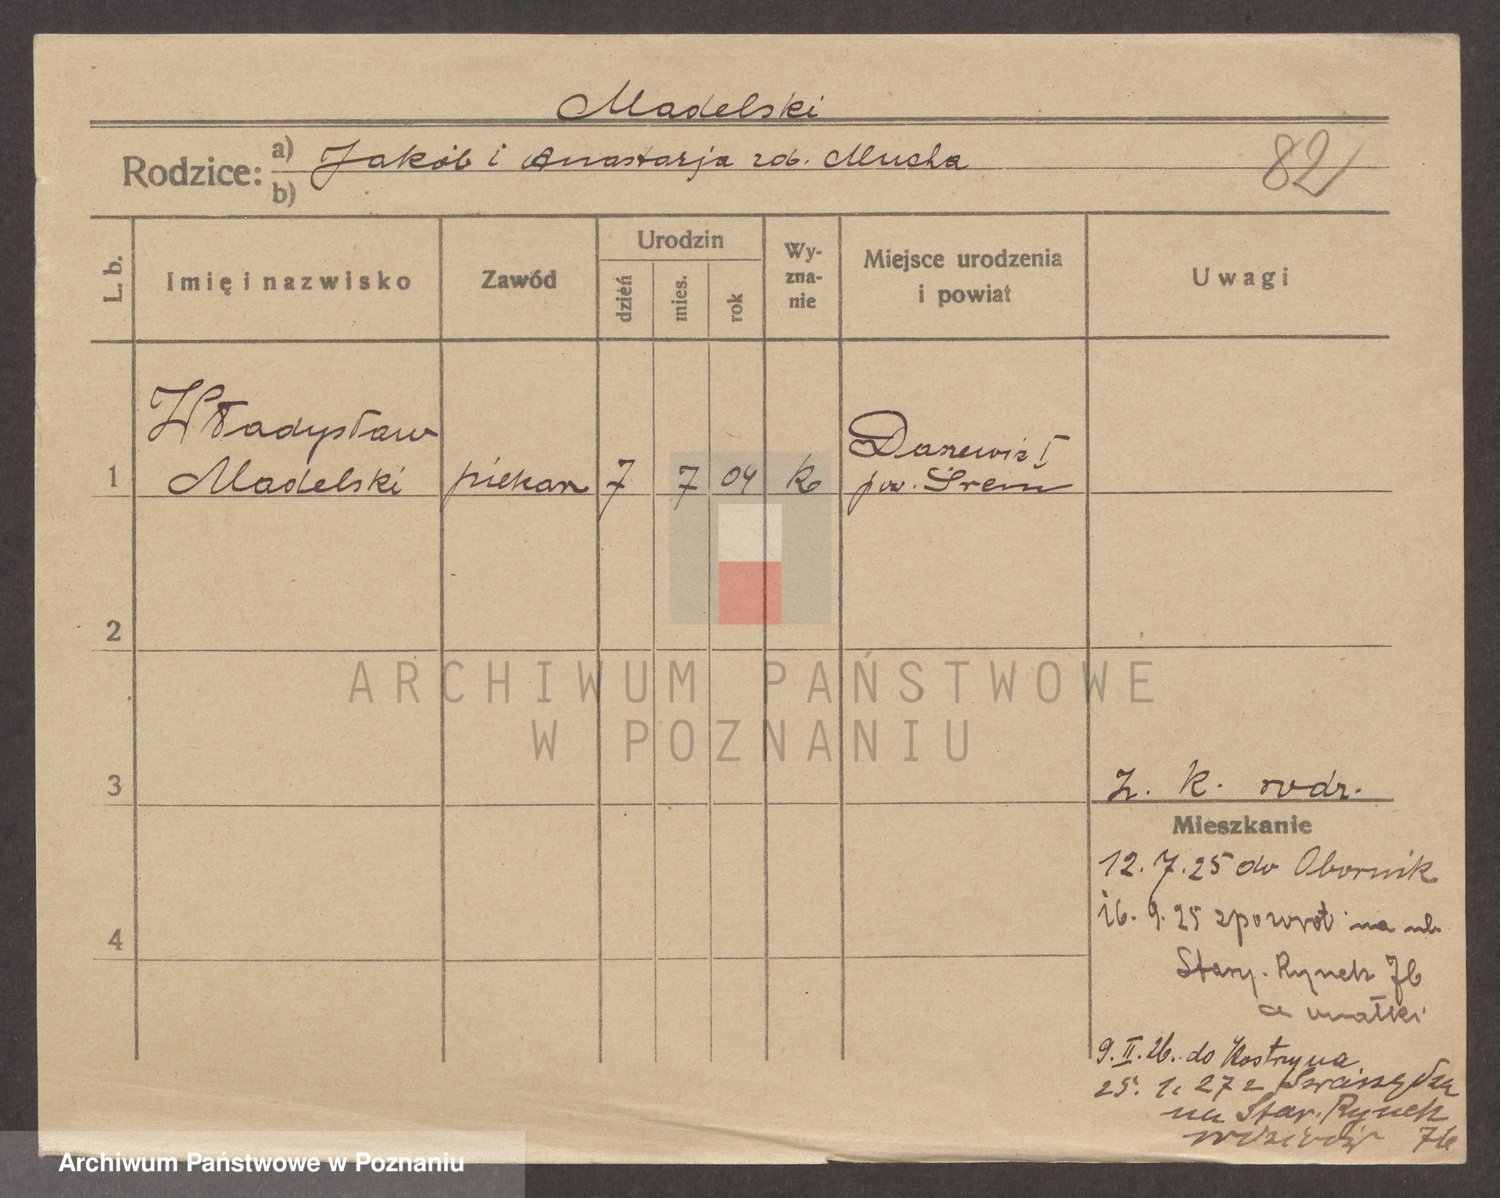 Madelski
Rodzice: a) Jakób i Anastazja rod. Mucha
b)
82
L. b. Imię i nazwisko Zawód Urodzin dzień mies. rok Wy-zna-nie Miejsce urodzenia i powiat Uwagi
Władysław
1 Madelski piekarz 7 7 04 k
pow. Śrem
2
ARCHIWUM PAŃSTWOWE
W POZNANIU
3
z. k. rodz.
Mieszkanie
12. 7. 25 do Obornik
4
16. 9. 25 zpowrot na ul.
Stary. Rynek 76
a matki
9. II. 26. do Kostrzyna
25. 1. 27 z
na Star. Rynek
76
Archiwum Państwowe w Poznaniu